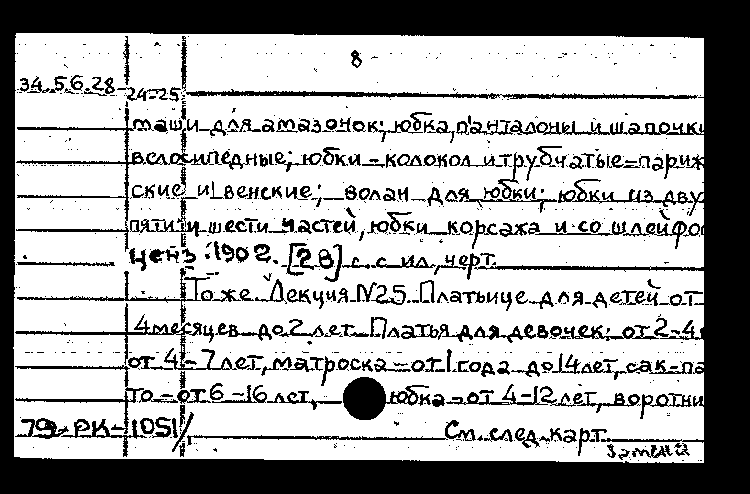 8
34.5.6.28
24-25
маши для амазонок; юбка, панталоны и шапочки
велосипедные; юбки - колокол и трубчатые - париж
ские и венские; волан для юбки; юбки из дву
пяти и шести частей, юбки корсажа и со шлейфо
ценз. 1902. [28] с. с ил., черт.
То же. Лекция N25. Платьице для детей от
4 месяцев до 2 лет. Платья для девочек: от 2-4
от 4-7 лет, матроска - от 1 года до 14 лет, сак-па
то - от 6-16 лет, юбка - от 4-12 лет, воротни
79-РК-1051/
См. след. карт.
Замена